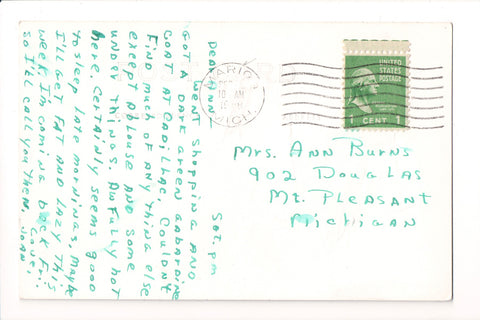 Sat. pm
Dear Ann:
Went shopping and
got a dark green gabardine
coat at Cadillac, couldn't
find much of any thing else
except a blouse and some
under things. Awfully hot
here. Certainly seems good
to sleep late mornings, maybe
I'll get fat and lazy this
week. I'm coming back Fri.
so I'll call you then.
Love,
Joan
MARION
10 AM
MICH.
UNITED
STATES
POSTAGE
1 CENT 1
Mrs. Ann Burns
902 Douglas
Mt. Pleasant
Michigan